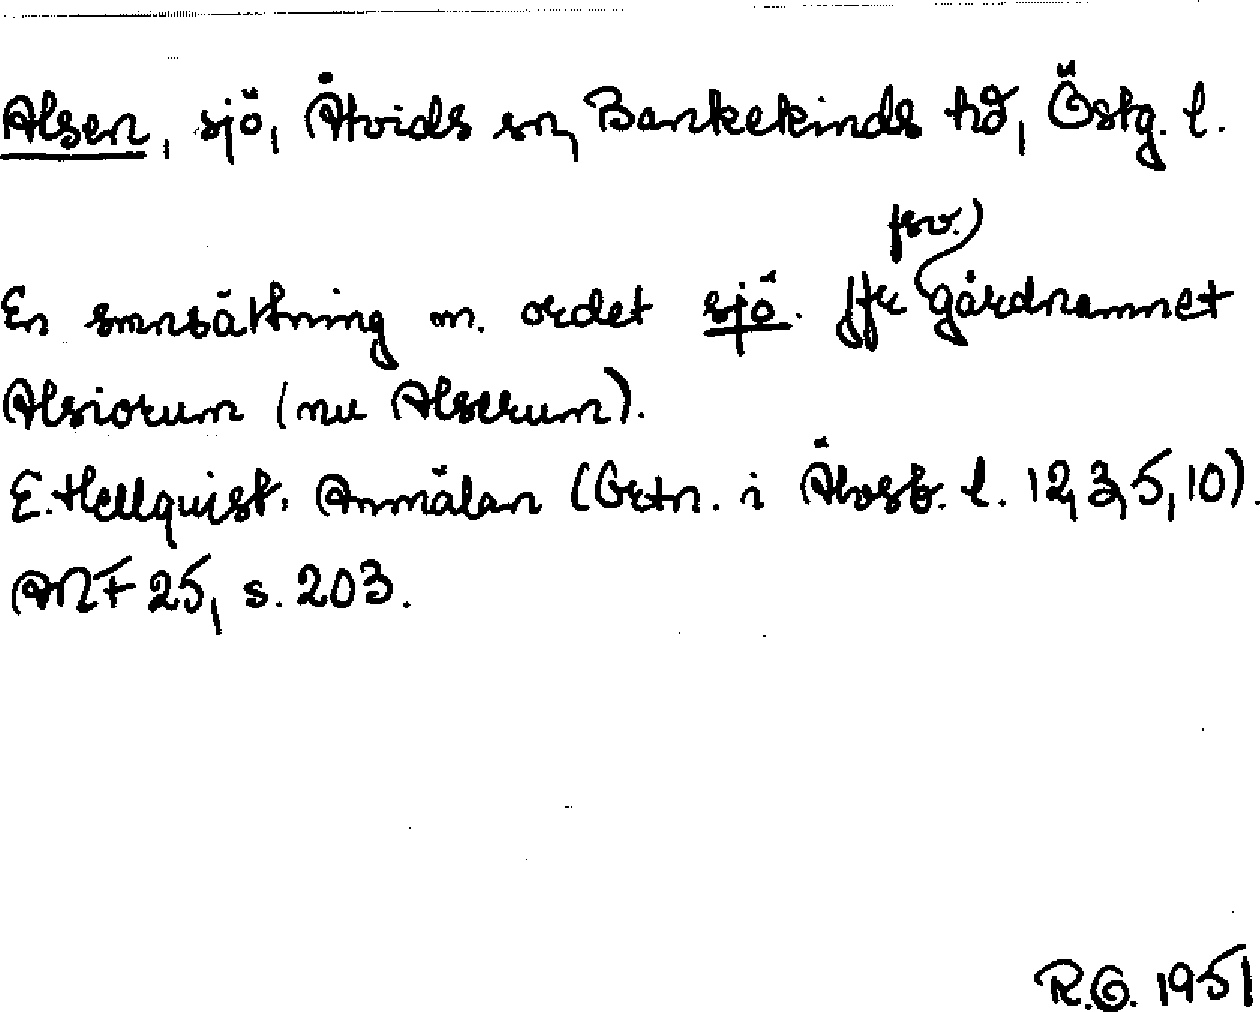 Alsen, sjö, Åtvids sn, Bankekinds hd, Östg. l.
En smnsättning m. ordet sjö. Jfr fsv. gårdnamnet
Alsiorum (nu Alserum).
E. Hellquist. Anmälan (Ortn. i Älvsb. l. 12, 3, 5, 10).
ANF 25, s. 203.
R.O. 1951